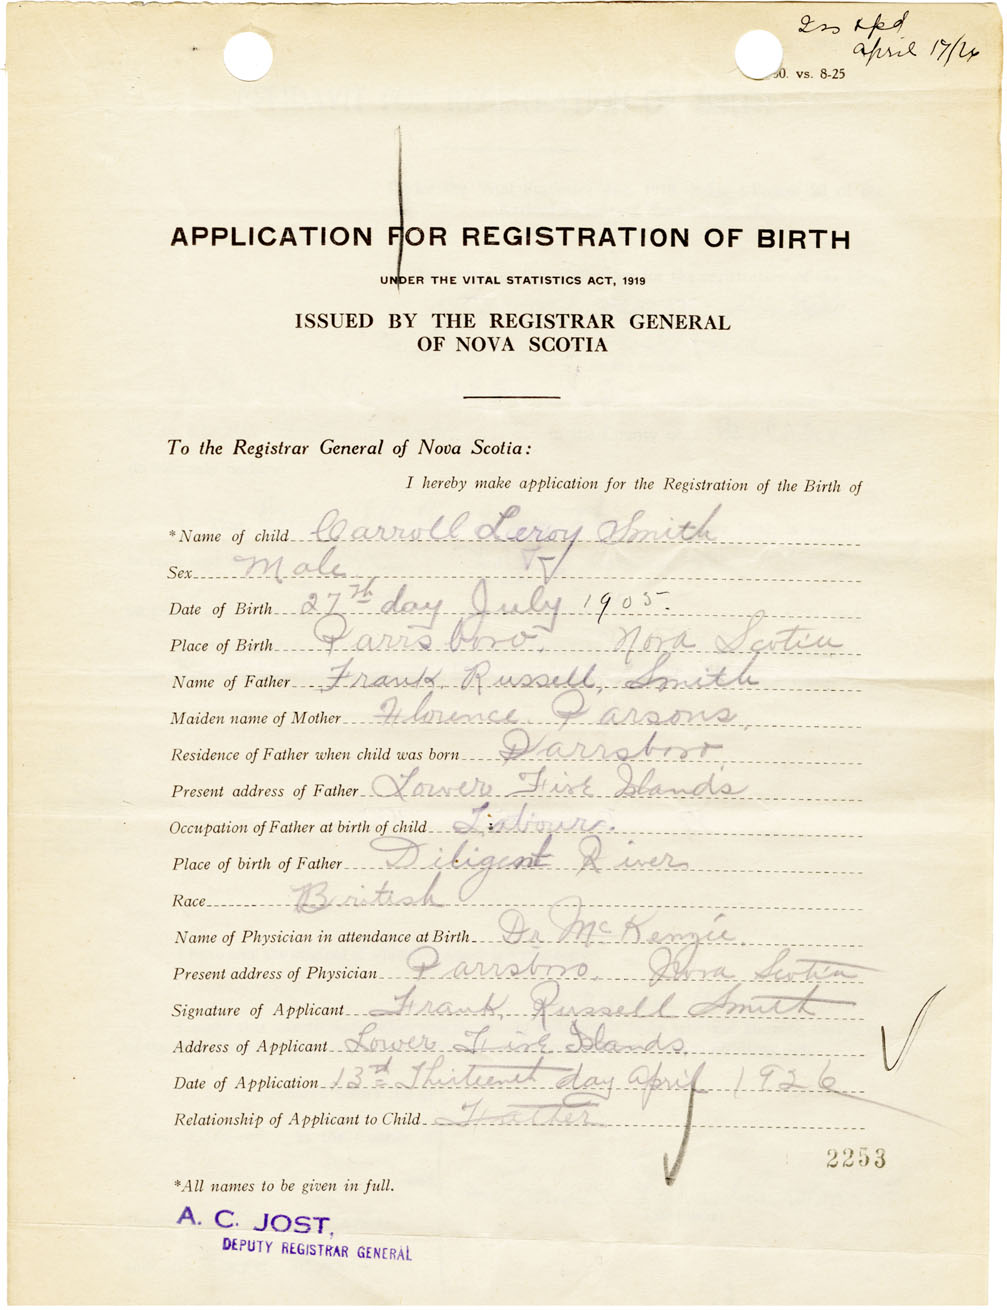 April 17/26
30. vs. 8-25
APPLICATION FOR REGISTRATION OF BIRTH
UNDER THE VITAL STATISTICS ACT, 1919
ISSUED BY THE REGISTRAR GENERAL
OF NOVA SCOTIA
To the Registrar General of Nova Scotia:
I hereby make application for the Registration of the Birth of
*Name of child Carroll Leroy Smith
Sex Male
Date of Birth 27th day July 1905.
Place of Birth Parrsboro, Nova Scotia
Name of Father Frank Russell Smith
Maiden name of Mother Florence Parsons,
Residence of Father when child was born Parrsboro,
Present address of Father Lower Five Islands
Occupation of Father at birth of child Labour.
Place of birth of Father Diligent River
Race British
Name of Physician in attendance at Birth Dr McKenzie,
Present address of Physician Parrsboro, Nova Scotia
Signature of Applicant Frank Russell Smith
Address of Applicant Lower Five Islands
Date of Application 13rd Thirteent day April 1926
Relationship of Applicant to Child Father
2253
*All names to be given in full.
A. C. JOST,
DEPUTY REGISTRAR GENERAL